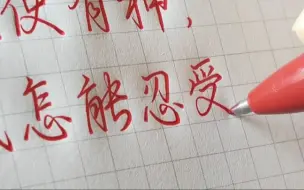 使有神，
怎能忍受